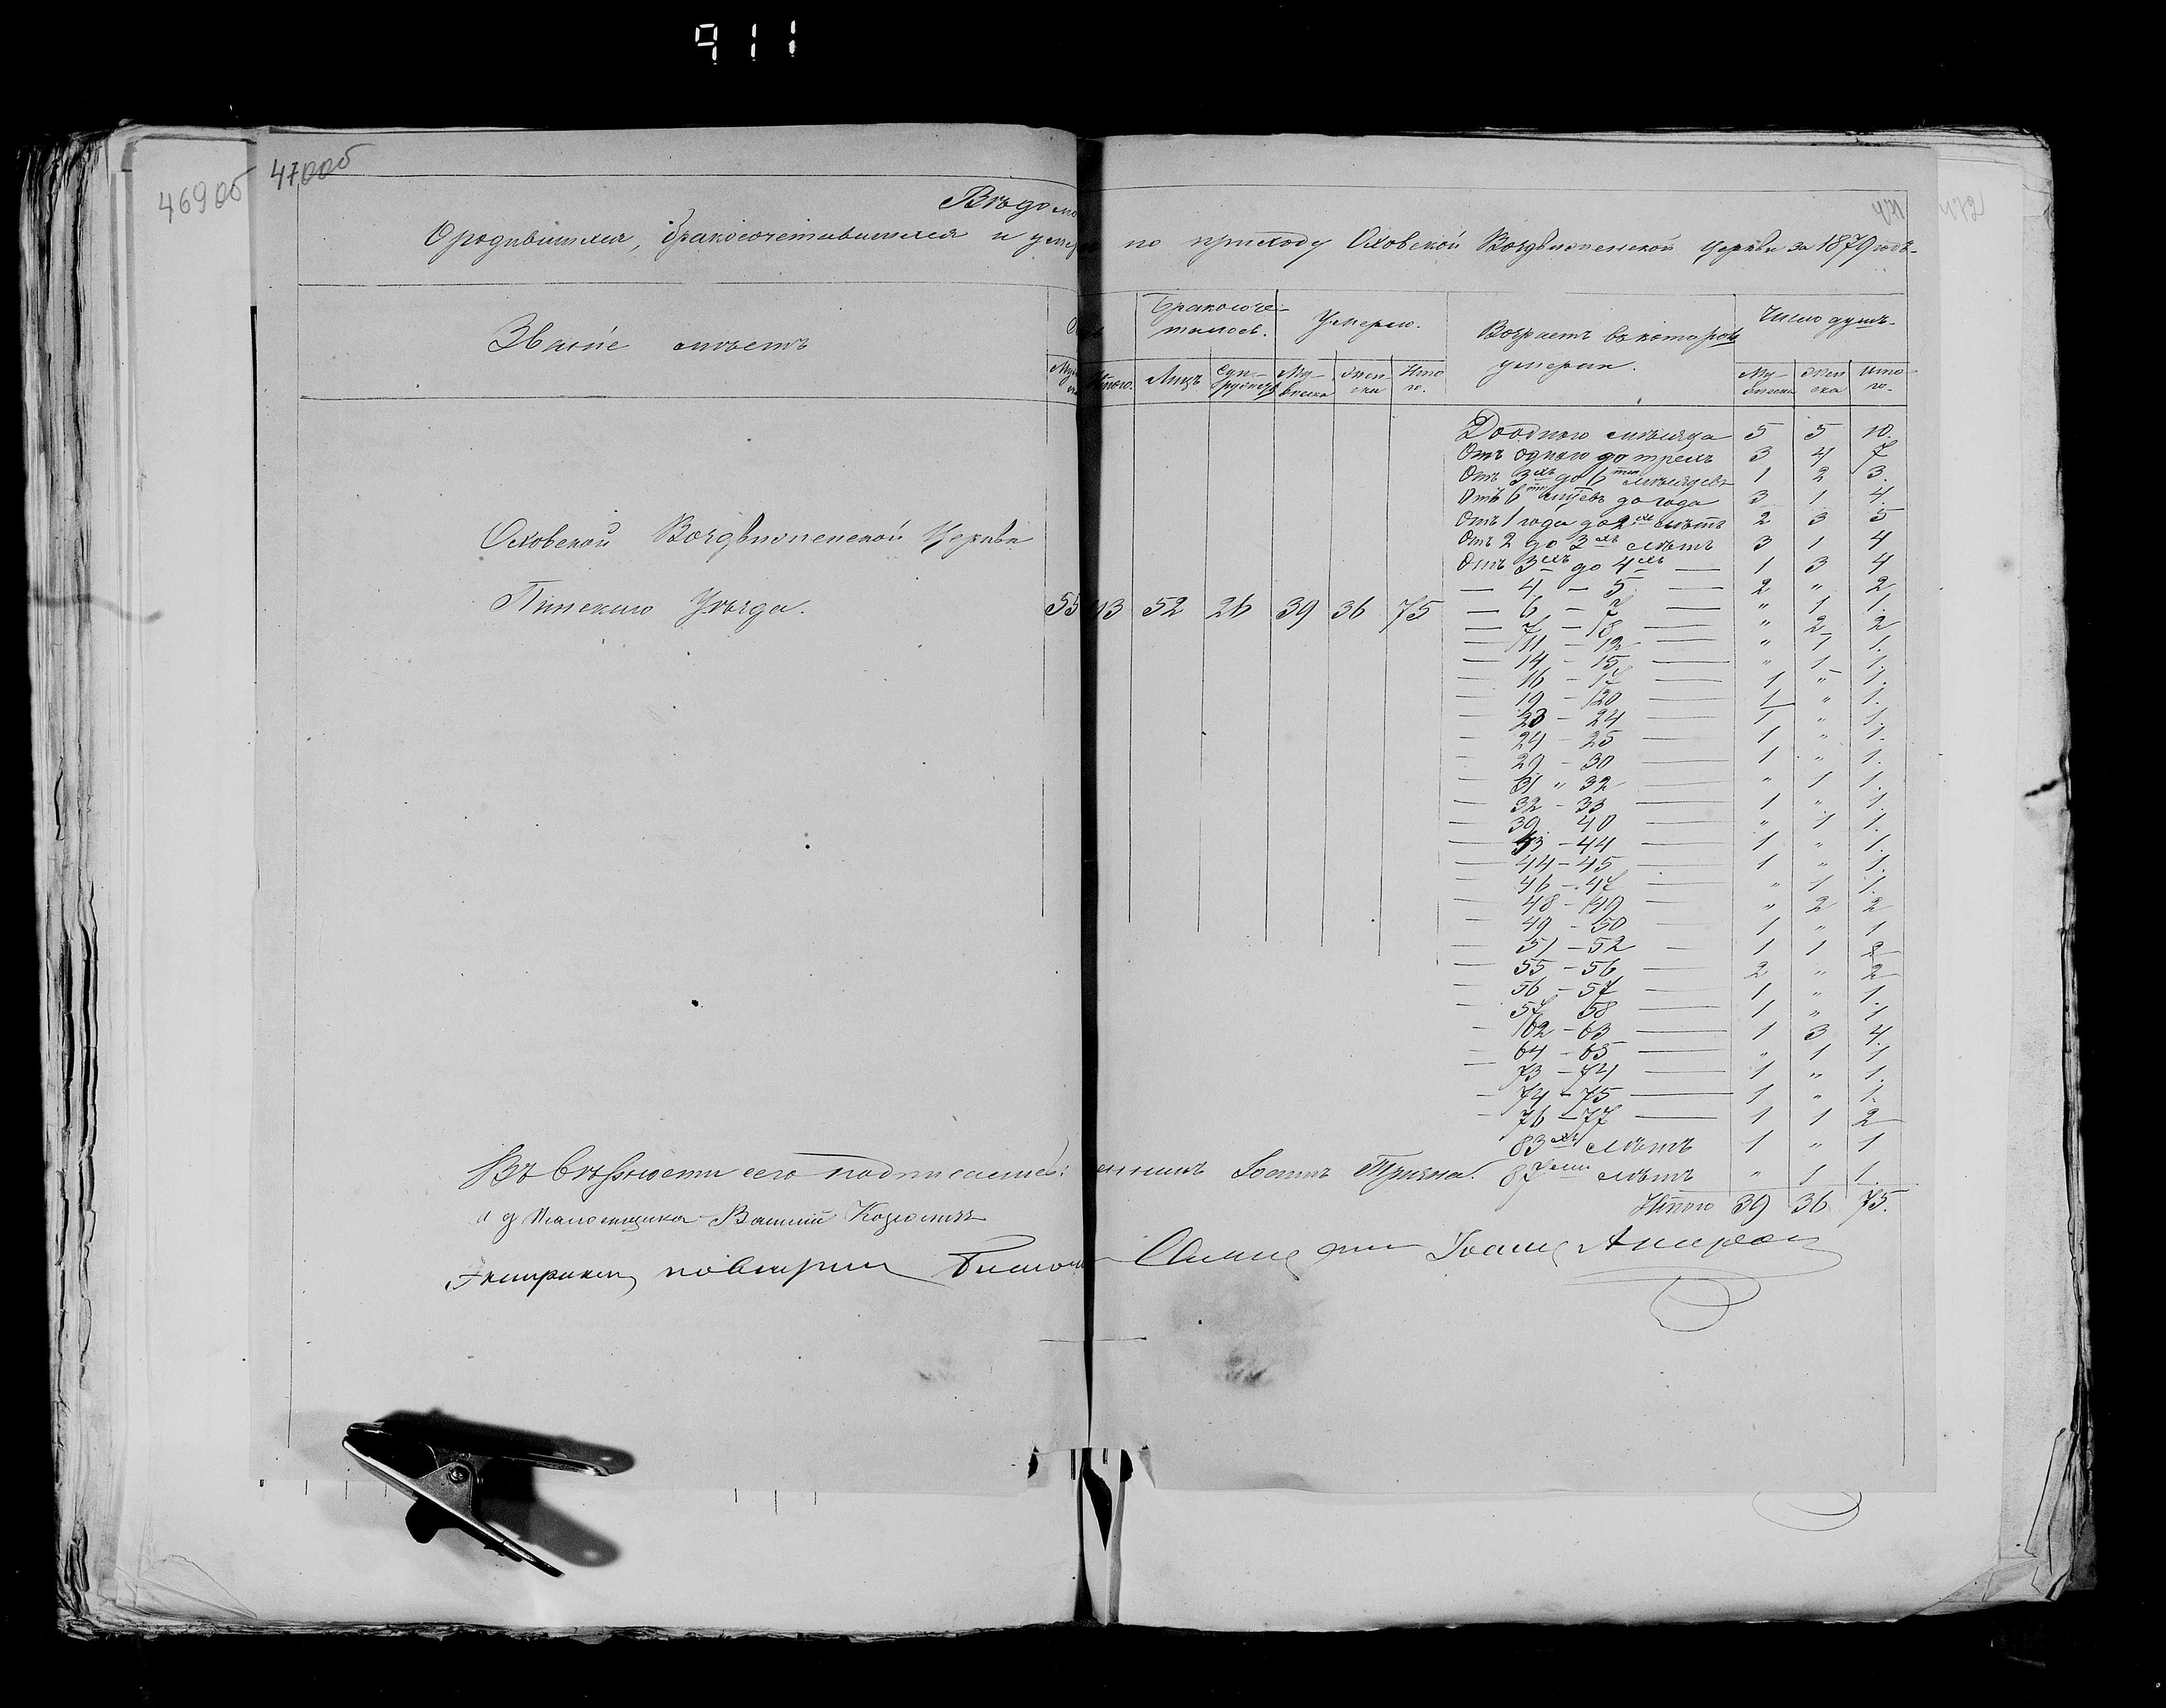 911
469об
470об
Вѣдомо
О родившихся, бракосочетавшихся и умер по приходу Оховской Воздвиженской церкви за 1879 годъ.
Званіе мѣстъ
Бракосоче-
талось.
Умерло.
Возрастъ въ которомъ
умерли.
Число душъ.
Итого.
Лицъ
Суп-
ружествъ
Му-
жеска
Жен-
ска
Ито
го.
Му-
жеска
Жен
ска
Ито-
го.
До одного мѣсяца 5 5 10.
Отъ одного до трехъ 3 4 7
Отъ 3хъ до 6ти мѣсяцевъ 1 2 3.
Отъ 6ти мѣсяцевъ до года 3 1 4.
Отъ 1 года до 2хъ лѣтъ 2 3 5
Отъ 2 до 3хъ лѣтъ 3 1 4
Отъ 3хъ до 4хъ — 1 3 4
— 4 — 5 — 2 " 2
— 6 — 7 — " 1 1.
— 7 — 8 — " 2 2
— 11 — 12 — " 1 1.
— 14 — 15 — " 1 1.
— 16 — 17 — 1 " 1.
— 19 — 20 — 1 " 1.
— 23 — 24 — 1 " 1.
— 24 — 25 — 1 " 1.
— 29 — 30 — 1 " 1.
— 31 " 32 — " 1 1.
— 32 — 33 — 1 " 1.
— 39 40 — " 1 1.
— 43 — 44 — 1 " 1.
— 44 — 45 — 1 " 1.
— 46 — 47 — " 1 1.
— 48 — 49 — " 2 2
— 49 — 50 — 1 " 1
— 51 — 52 — 1 1 2
— 55 — 56 — 2 " 2
— 56 — 57 — 1 " 1.
— 57 58 — 1 " 1
— 62 — 63 — 1 3 4.
— 64 — 65 — " 1 1
— 73 — 74 — 1 " 1.
— 74 — 75 — 1 " 1.
— 76 — 77 — 1 1 2
83хъ лѣтъ 1 " 1
87ми лѣтъ " 1 1.
Итого 39 36 75.
Оховской Воздвиженской Церкви
Пинскаго Уѣзда.
55 43 52 26 39 36 75
Въ вѣрности сего подписались: енникъ Іоаннъ
и д Псаломщика Василій